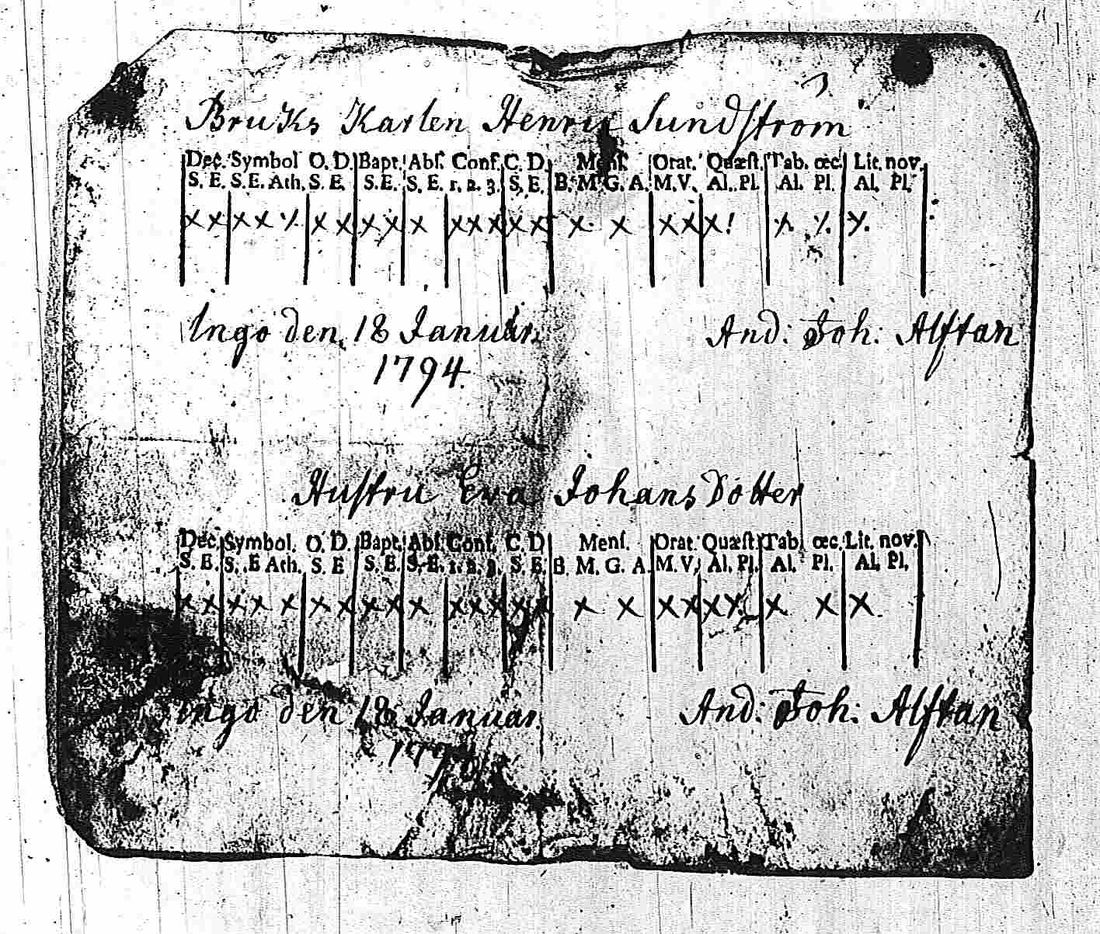 Bruks Karlen Henric Sundström
Dec. Symbol O. D. Bapt. Abs. Conf. C. D. Mens. Orat. Quæst. Tab. œc. Lit. nov.
S. E. S. E. Ath. S. E. S. E. S. E. 1. 2. 3. S. E. B. M. G. A. M. V. Al. Pl. Al. Pl. Al. Pl.
Ingo den 18 Januar.
And: Joh: Alftan
1794.
Hustru Eva Johans Dotter
Dec. Symbol. O. D. Bapt. Abs. Conf. C. D. Mens. Orat. Quæst. Tab. œc. Lit. nov.
S. E. S. E Ath. S. E S. E. S. E. 1. 2. 3. S. E. B. M. G. A. M. V. Al. Pl. Al. Pl. Al. Pl.
Ingo den 18 Januar.
And: Joh: Alftan